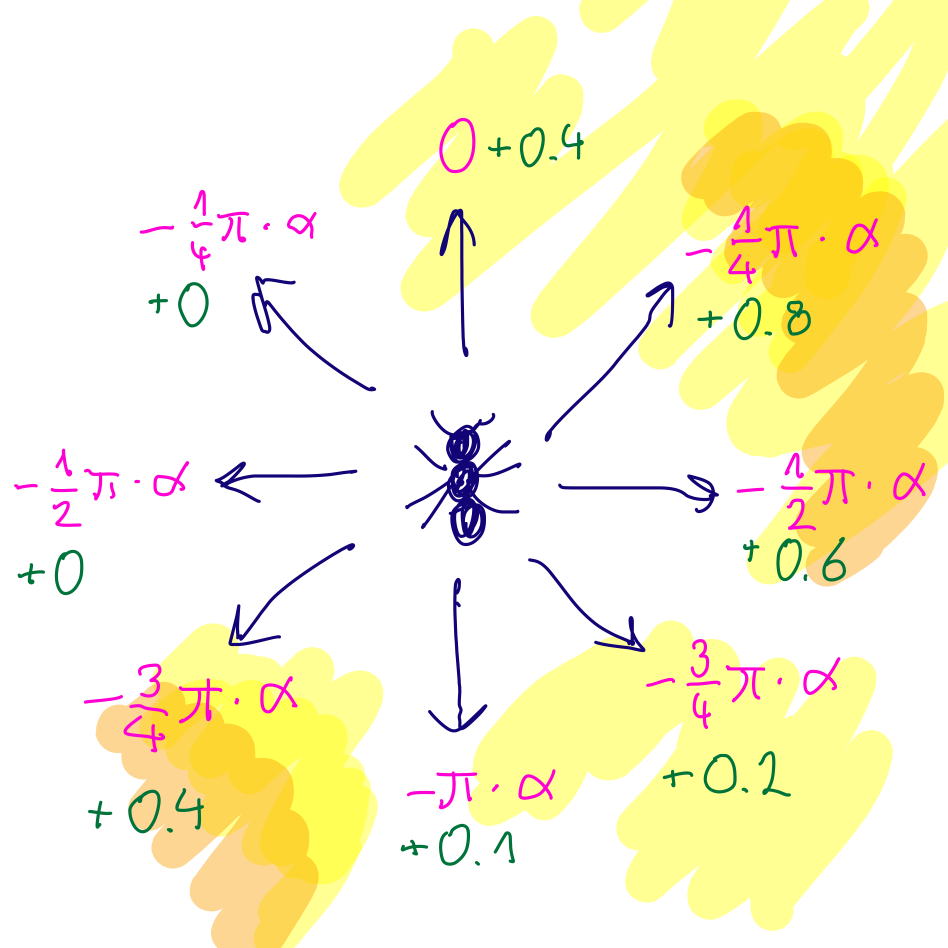 0 +0.4
-1/4 π · α
+0
-1/4 π · α
+0.8
-1/2 π · α
+0
-1/2 π · α
+0.6
-3/4 π · α
+0.4
-π · α
+0.1
-3/4 π · α
+0.2